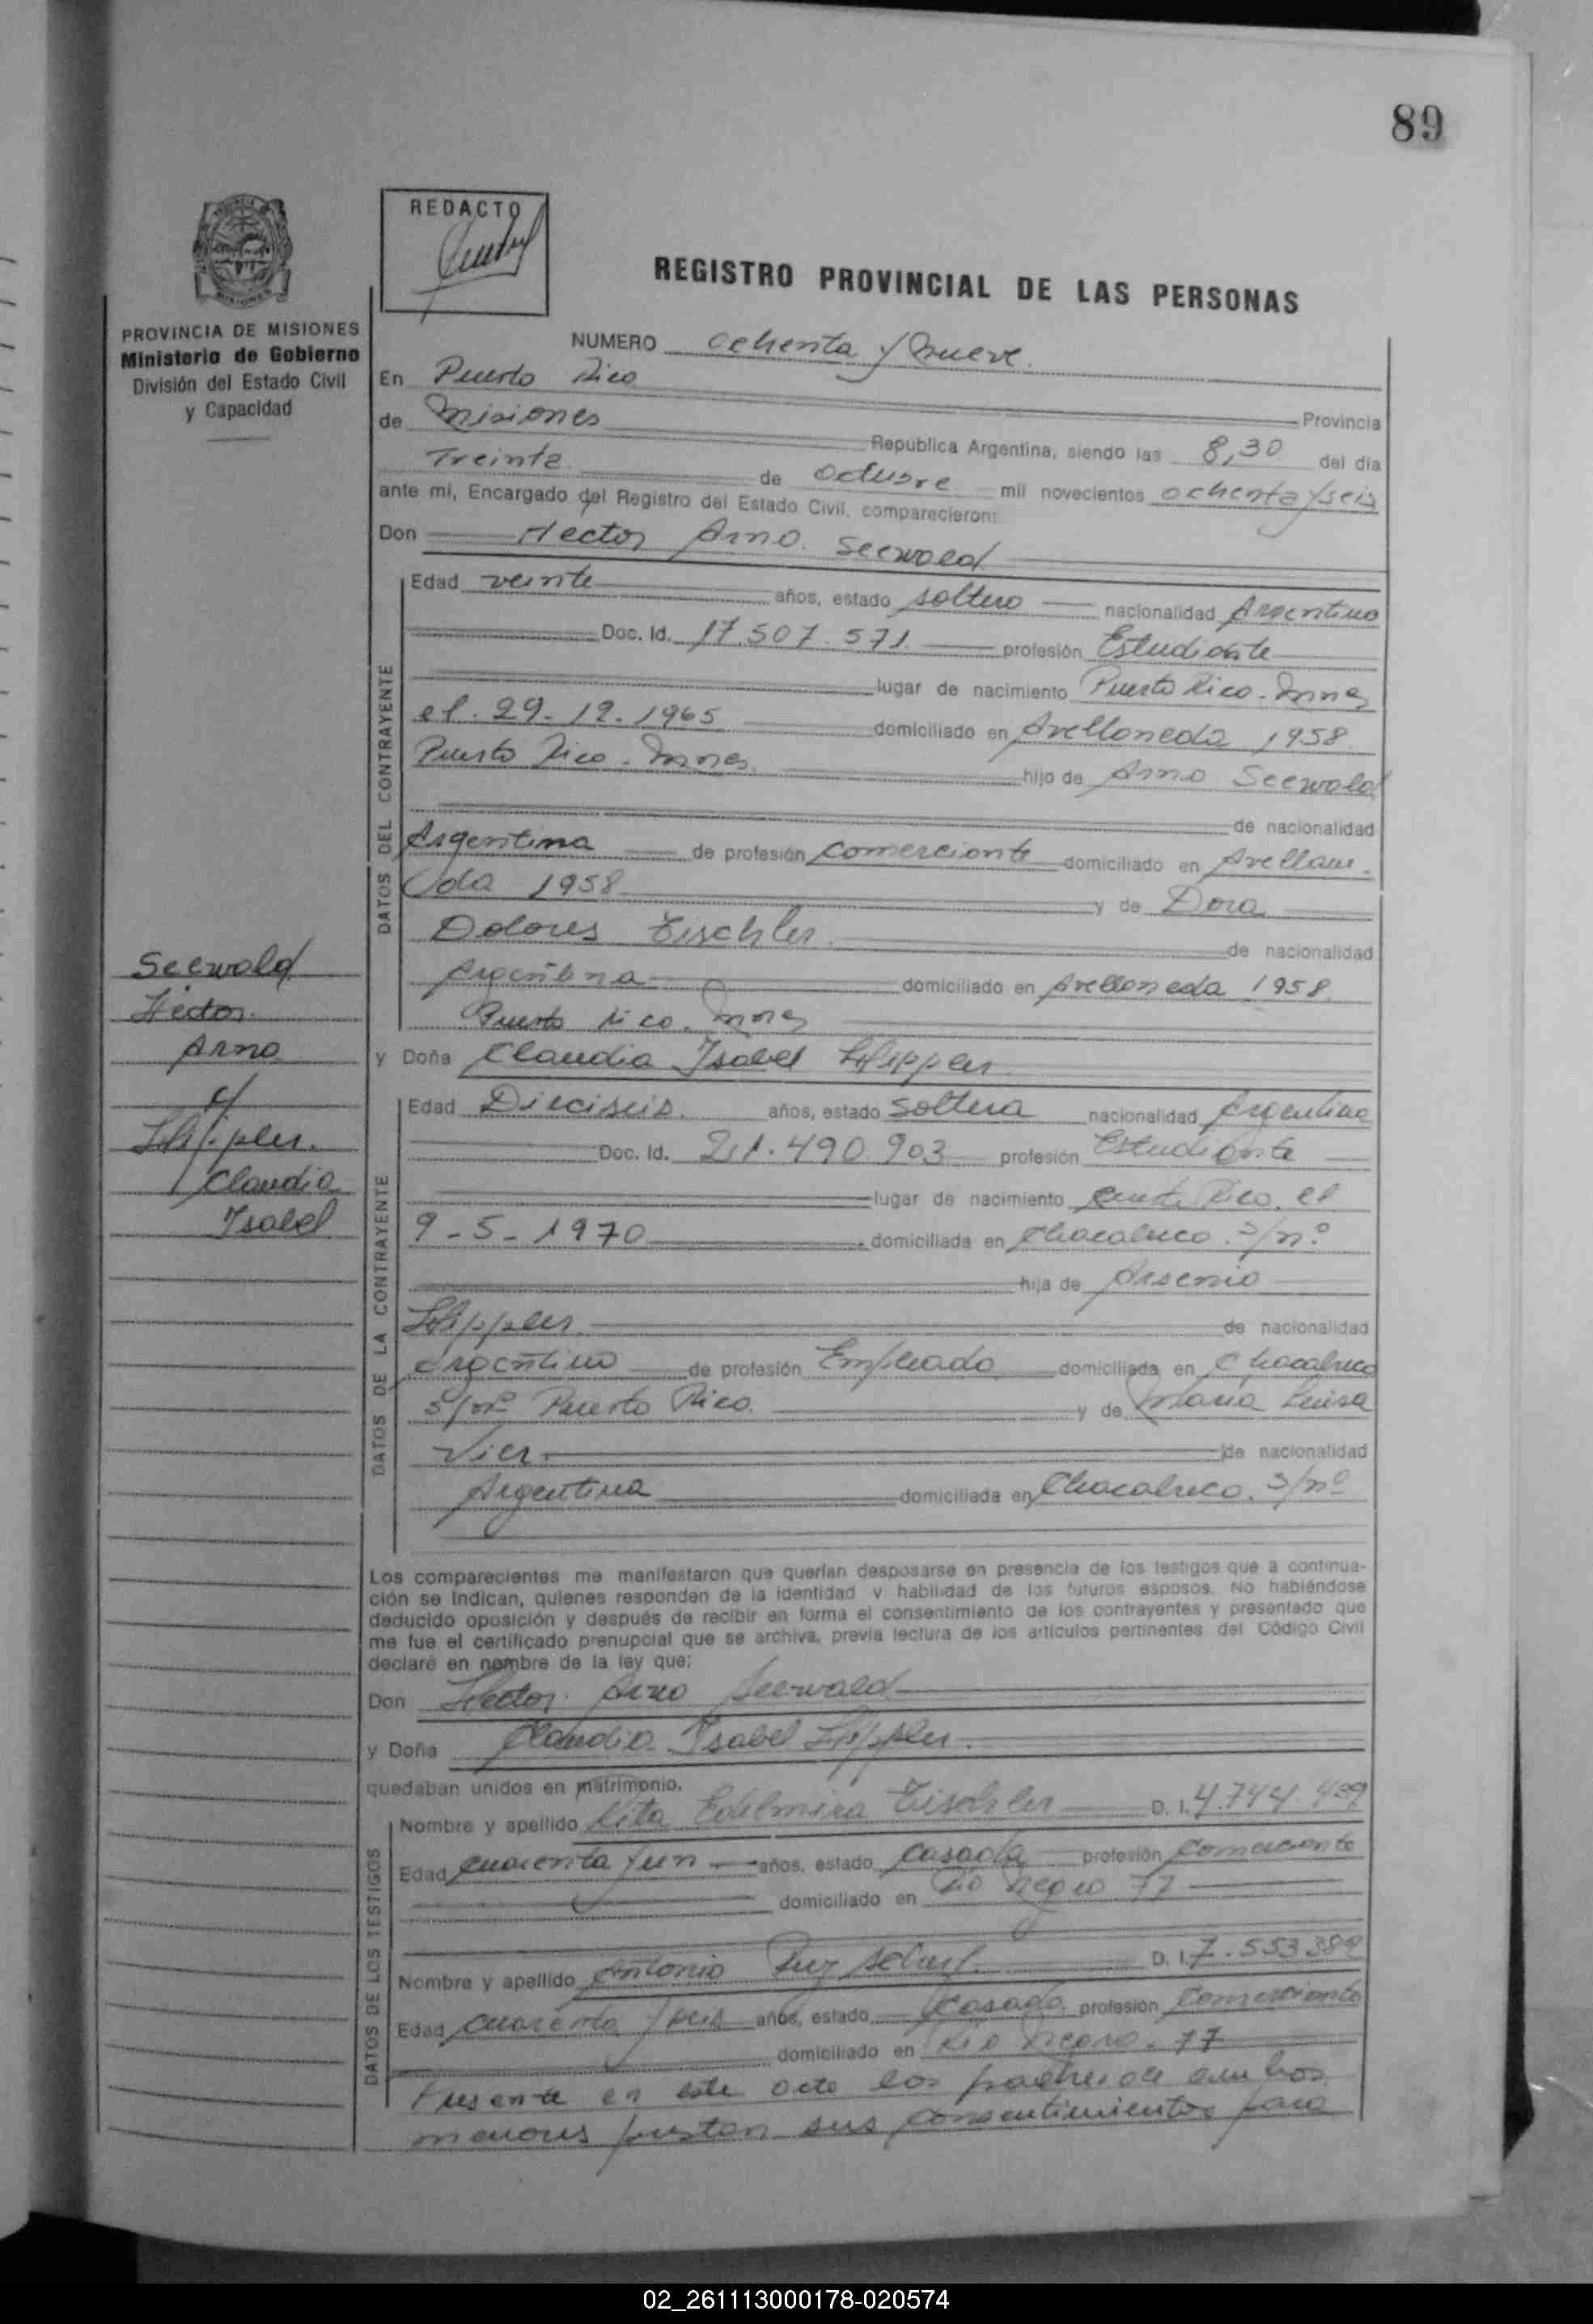 89
REDACTO
REGISTRO PROVINCIAL DE LAS PERSONAS
PROVINCIA DE MISIONES
Ministerio de Gobierno
División del Estado Civil
y Capacidad
NUMERO ochenta y nueve.
En Puerto Rico Provincia
de Misiones República Argentina, siendo las 8,30 del día
Treinta de octubre mil novecientos ochenta y seis
ante mí, Encargado del Registro del Estado Civil, comparecieron:
Don Hector Arno Seewald
DATOS DEL CONTRAYENTE
Edad veinte años, estado soltero nacionalidad Argentino
Doc. Id. 17.507.571 profesión Estudiante
lugar de nacimiento Puerto Rico - Mnes
el 29-12-1965 domiciliado en Avellaneda 1958
Puerto Rico - Mnes hijo de Arno Seewald
de nacionalidad
Argentina de profesión comerciante domiciliado en Avellane-
da 1958 y de Dora
Dolores Tischler de nacionalidad
Argentina domiciliado en Avellaneda 1958
Puerto Rico - Mnes
Seewald
Hector
Arno
c/
Claudia
Isabel
y Doña Claudia Isabel
DATOS DE LA CONTRAYENTE
Edad Dieciseis años, estado soltera nacionalidad Argentina
Doc. Id. 21.490.903 profesión Estudiante
lugar de nacimiento Puerto Rico. el
9-5-1970 domiciliada en Chacabuco. s/nº
hija de Arsenio
de nacionalidad
Argentino de profesión Empleado domiciliada en Chacabuco
s/nº Puerto Rico. y de Maria Luisa
Vier de nacionalidad
Argentina domiciliada en Chacabuco. s/nº
Los comparecientes me manifestaron que querían desposarse en presencia de los testigos que a continua-
ción se indican, quienes responden de la identidad y habilidad de los futuros esposos. No habiéndose
deducido oposición y después de recibir en forma el consentimiento de los contrayentes y presentado que
me fue el certificado prenupcial que se archiva, previa lectura de los artículos pertinentes del Código Civil
declaré en nombre de la ley que:
Don Hector Arno Seewald
y Doña Claudia Isabel
quedaban unidos en matrimonio.
DATOS DE LOS TESTIGOS
Nombre y apellido Rita Edelmira Tischler D. I. 4.744.439
Edad cuarenta y un años, estado casada profesión comerciante
domiciliado en Rio Negro 77
Nombre y apellido Antonio D. I. 7.553.389
Edad cuarenta y seis años, estado casado profesión Comerciante
domiciliado en Rio Negro. 77
Presente en este acto los padres de ambos
menores prestan sus consentimientos para
02_261113000178-020574